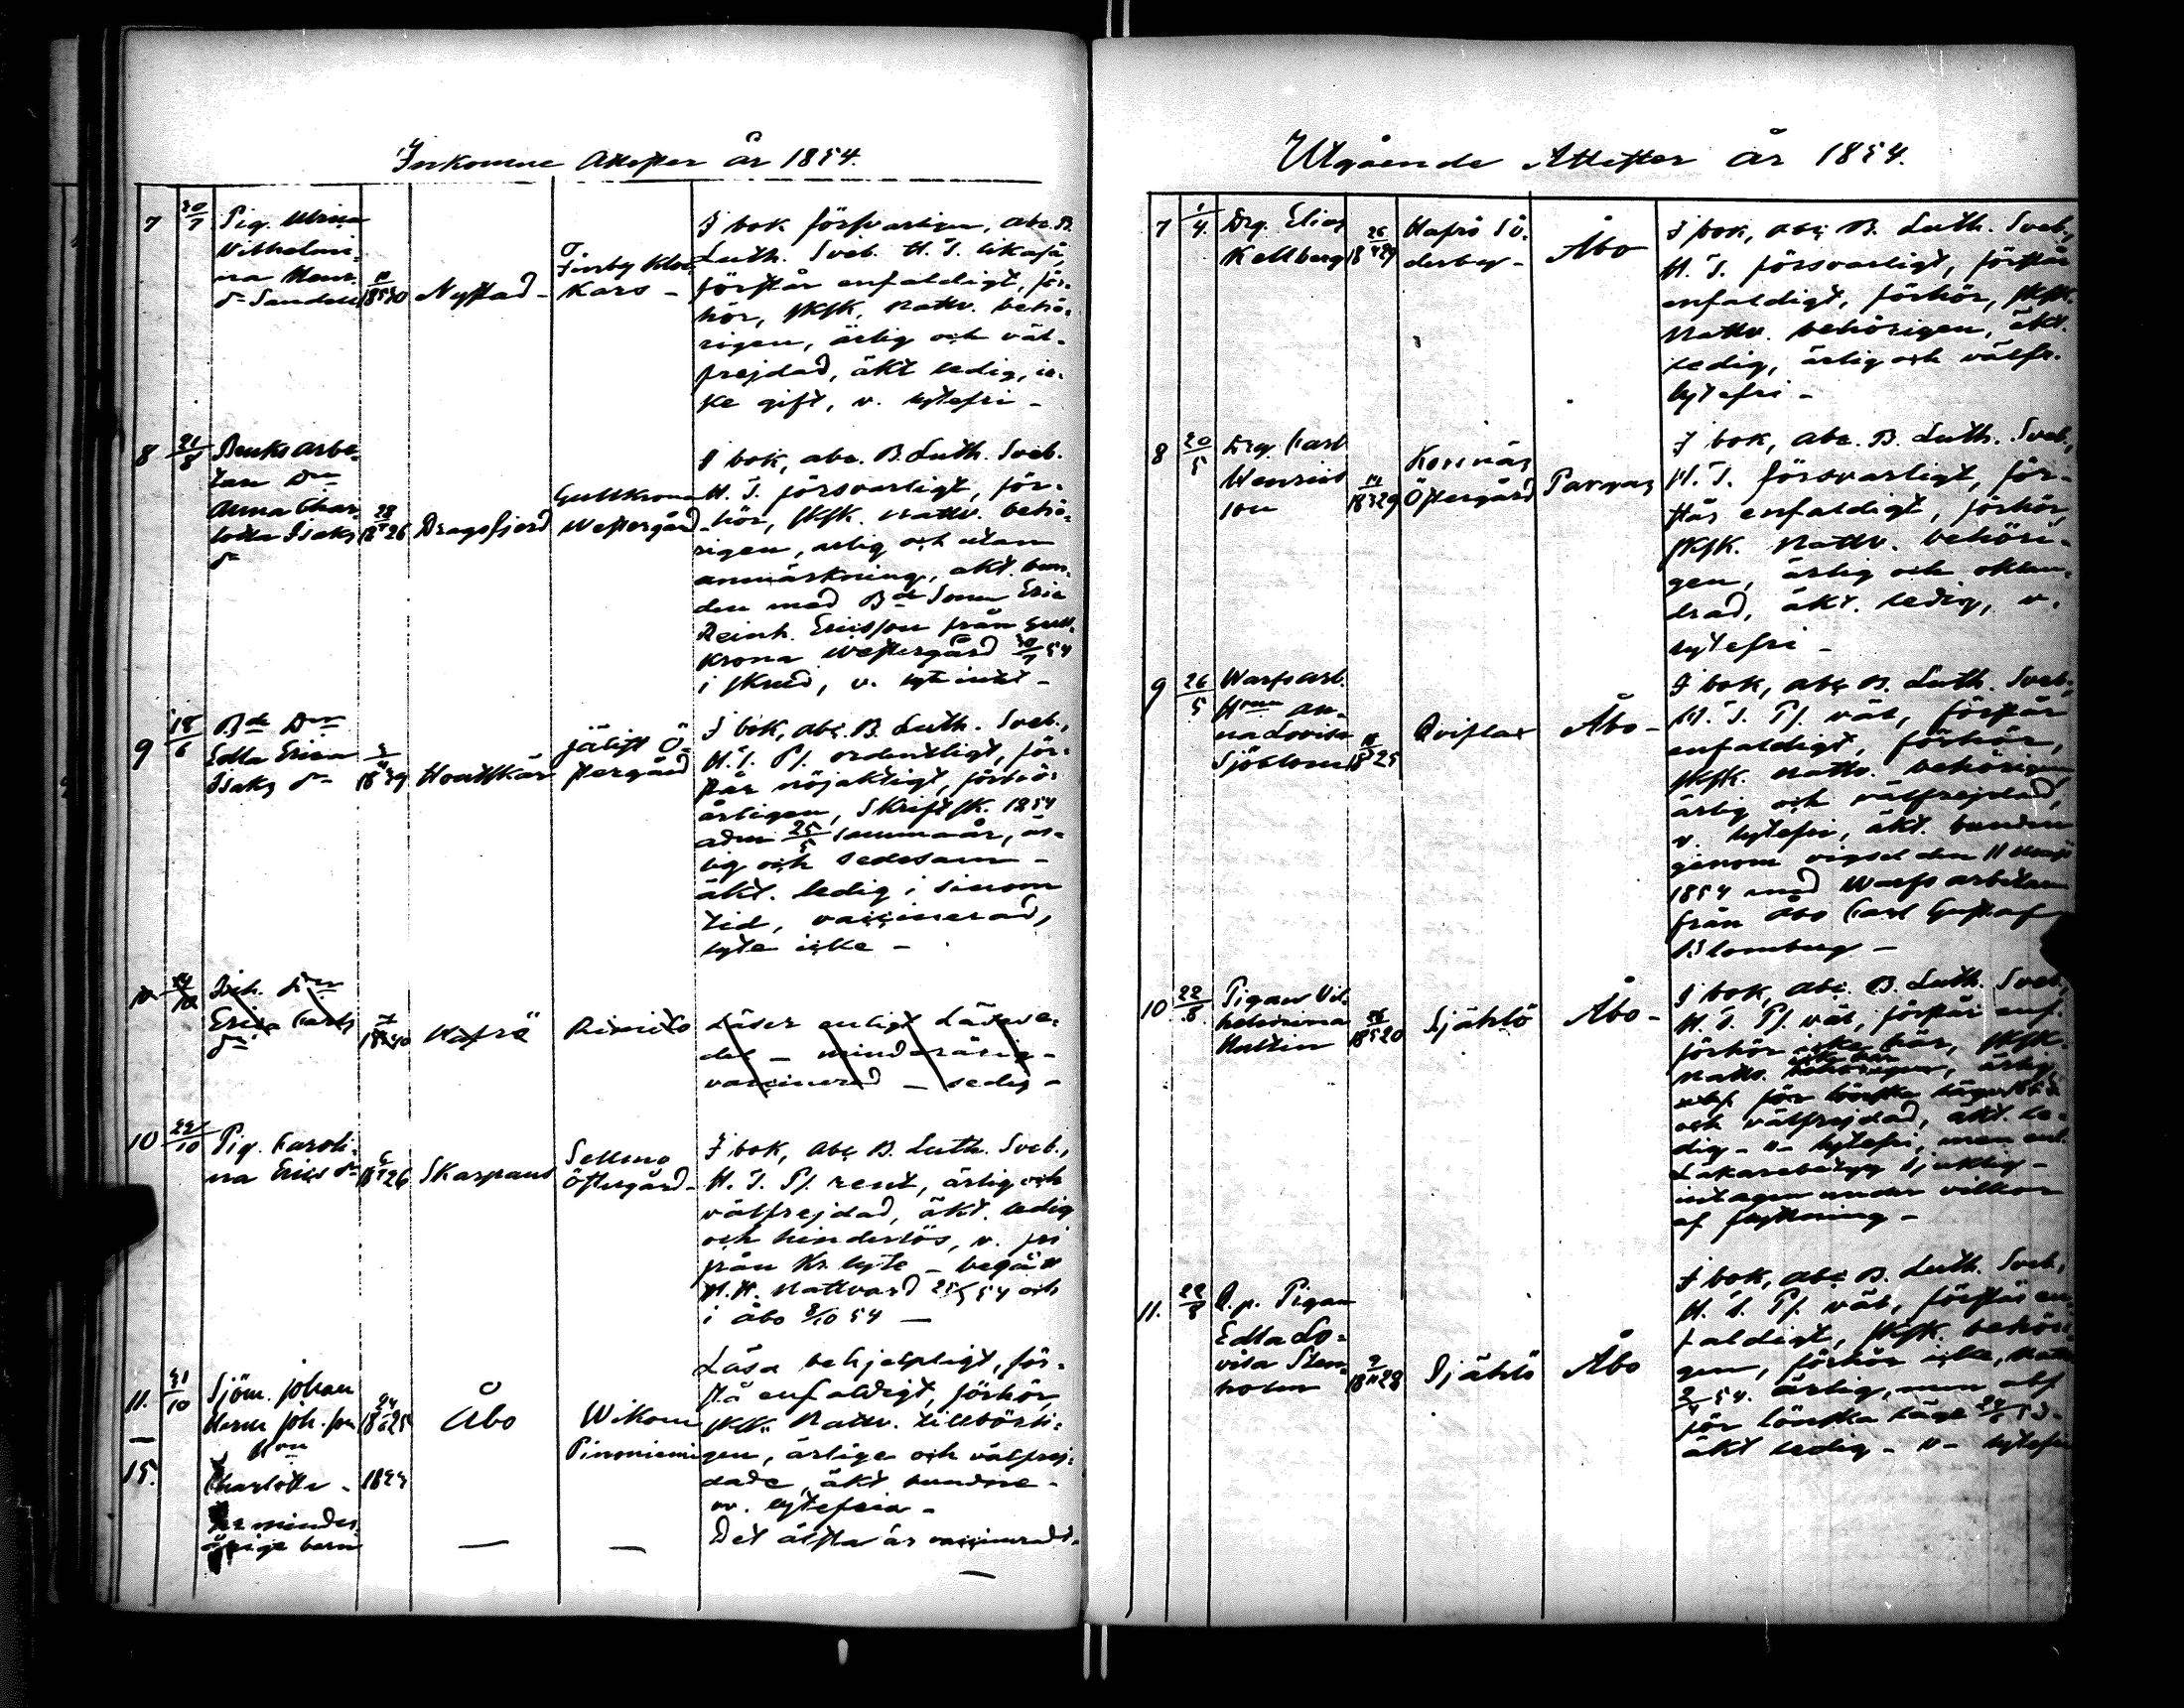 Inkomne Attester år 1854.
7 20/7 Pig. Ulrica
Vilhelmi-
na Henr.
dr Sandell
Nystad -
Finby Kloc-
Kars -
I bok försvarligen, abc. B.
Luth. Sveb. H. T. likaså,
förstår enfaldigt, för-
hör, sksk. nattv. behö-
rigen, ärlig och väl-
frejdad, äkt ledig, ic-
ke gift, v. lytefri -
8 21/8 Bruks arbe-
tare Dr
Anna Char-
lotta Isaks
dr
28/ 18 26
Dragsfjerd
Gullkrona
Westergård
I bok, abc. B. Luth. Sveb.
H. T. försvarligt, för-
hör, sksk. nattv. behö-
rigen, ärlig och utan
anmärkning, äkt. bun-
den med Bde Sonen Eric
Reinh. Ericsson från Gull-
krona Westergård 54
i skrud, v. lyte intet -
9 18/6 Bde Dr
Edla Erica
Isaks dr
Houtskär
Jäligt Ö-
stergård
I bok, abc. B. Luth. Sveb.,
H. T. Ps. ordentligt, för-
står nöjaktigt, förhör
årligen, Skriftsk. 1854
adm 25/5 samma år, är-
lig och sedesam -
äkt. ledig i sinom
tid, vaccinerad,
lyte icke -
Erica Carls
dr
Hafrö
Rimito
Läser enligt Läsese-
del - minderårig -
vaccinerad - ledig -
10 22/10 Pig. Caroli-
na Erics dr
Skarpans
Sellmo
Östergård -
I bok, abc B. Luth. Sveb.,
H. T. Ps. rent, ärlig och
välfrejdad, äkt. ledig
och hinderlös, v. fri
från Kr. lyte - begått
H. H. nattvard 25/5 54 och
i Åbo 8/10 54 -
11. 31/10 Sjöm. Johan
Herm Joh. son
-
15. Hon
Charlotta - 1824
minder-
årige barn
Åbo
Wikom
Pinoniemi
Läsa behjelpligt, för-
stå enfaldigt, förhör,
skk. Nattv. tillbörli-
gen, ärlige och välfrej-
dade, äkt bundne -
vv. lytefria -
Det älsta är vaccineradt -
Utgående Attester år 1854.
7 1/4 Drg. Elias
Kellberg
Hafrö Sö-
derby -
Åbo
I bok, abc B. Luth. Sveb.,
H. T. försvarligt, förstår
enfaldigt, förhör, sksk.
Nattv. behörigen, äkt.
ledig, ärlig och välfr.
lytefri -
8 20/5 Drg. Carl
Henrics
son
Kornäs
Östergård
Pargas
I bok, abc. B. Luth. Sveb.,
H. T. försvarligt, för-
står enfaldigt, förhör,
sksk. nattv. behöri-
gen, ärlig och oklan-
drad, äkt. ledig, v.
lytefri -
9 26/5 Warfs arb.
Hon An-
na Lovisa
Sjöblom
Qviflax
Åbo -
I bok, abc B. Luth. Sveb.,
H. T. Ps. väl, förstår
enfaldigt, förhör,
sksk. nattv. behörigen
ärlig och välfrejdad,
v. lytefri, äkt. bunden
genom vigsel den 11 Maji
1854 med Warfs arbetaren
från Åbo Carl Gustaf
Blomberg -
10 22/8 Pigan Vil-
helmina
Hallin
Sjählö
Åbo -
I bok, abc. B. Luth. Sveb.
H. T. Ps. väl, förstår enf.
förhör icke här, sksk.
nattv. icke här, ärlig
för lönska läge
och välfrejdad, äkt. le-
dig - v - lytefri, men enl.
Läkarebetyg sjuklig -
intagen under villkor
af flyttning -
11. 22/8 D. p. Pigan
Edla Lo-
visa Sten-
holm
Sjählö
Åbo
I bok, abc B. Luth. Sveb.,
H. T. Ps. väl, förstår en-
faldigt, sksk. behöri-
gen, förhör icke, nattv.
54. ärlig, men abs
för lönska läge
äkt ledig - v - lytefri